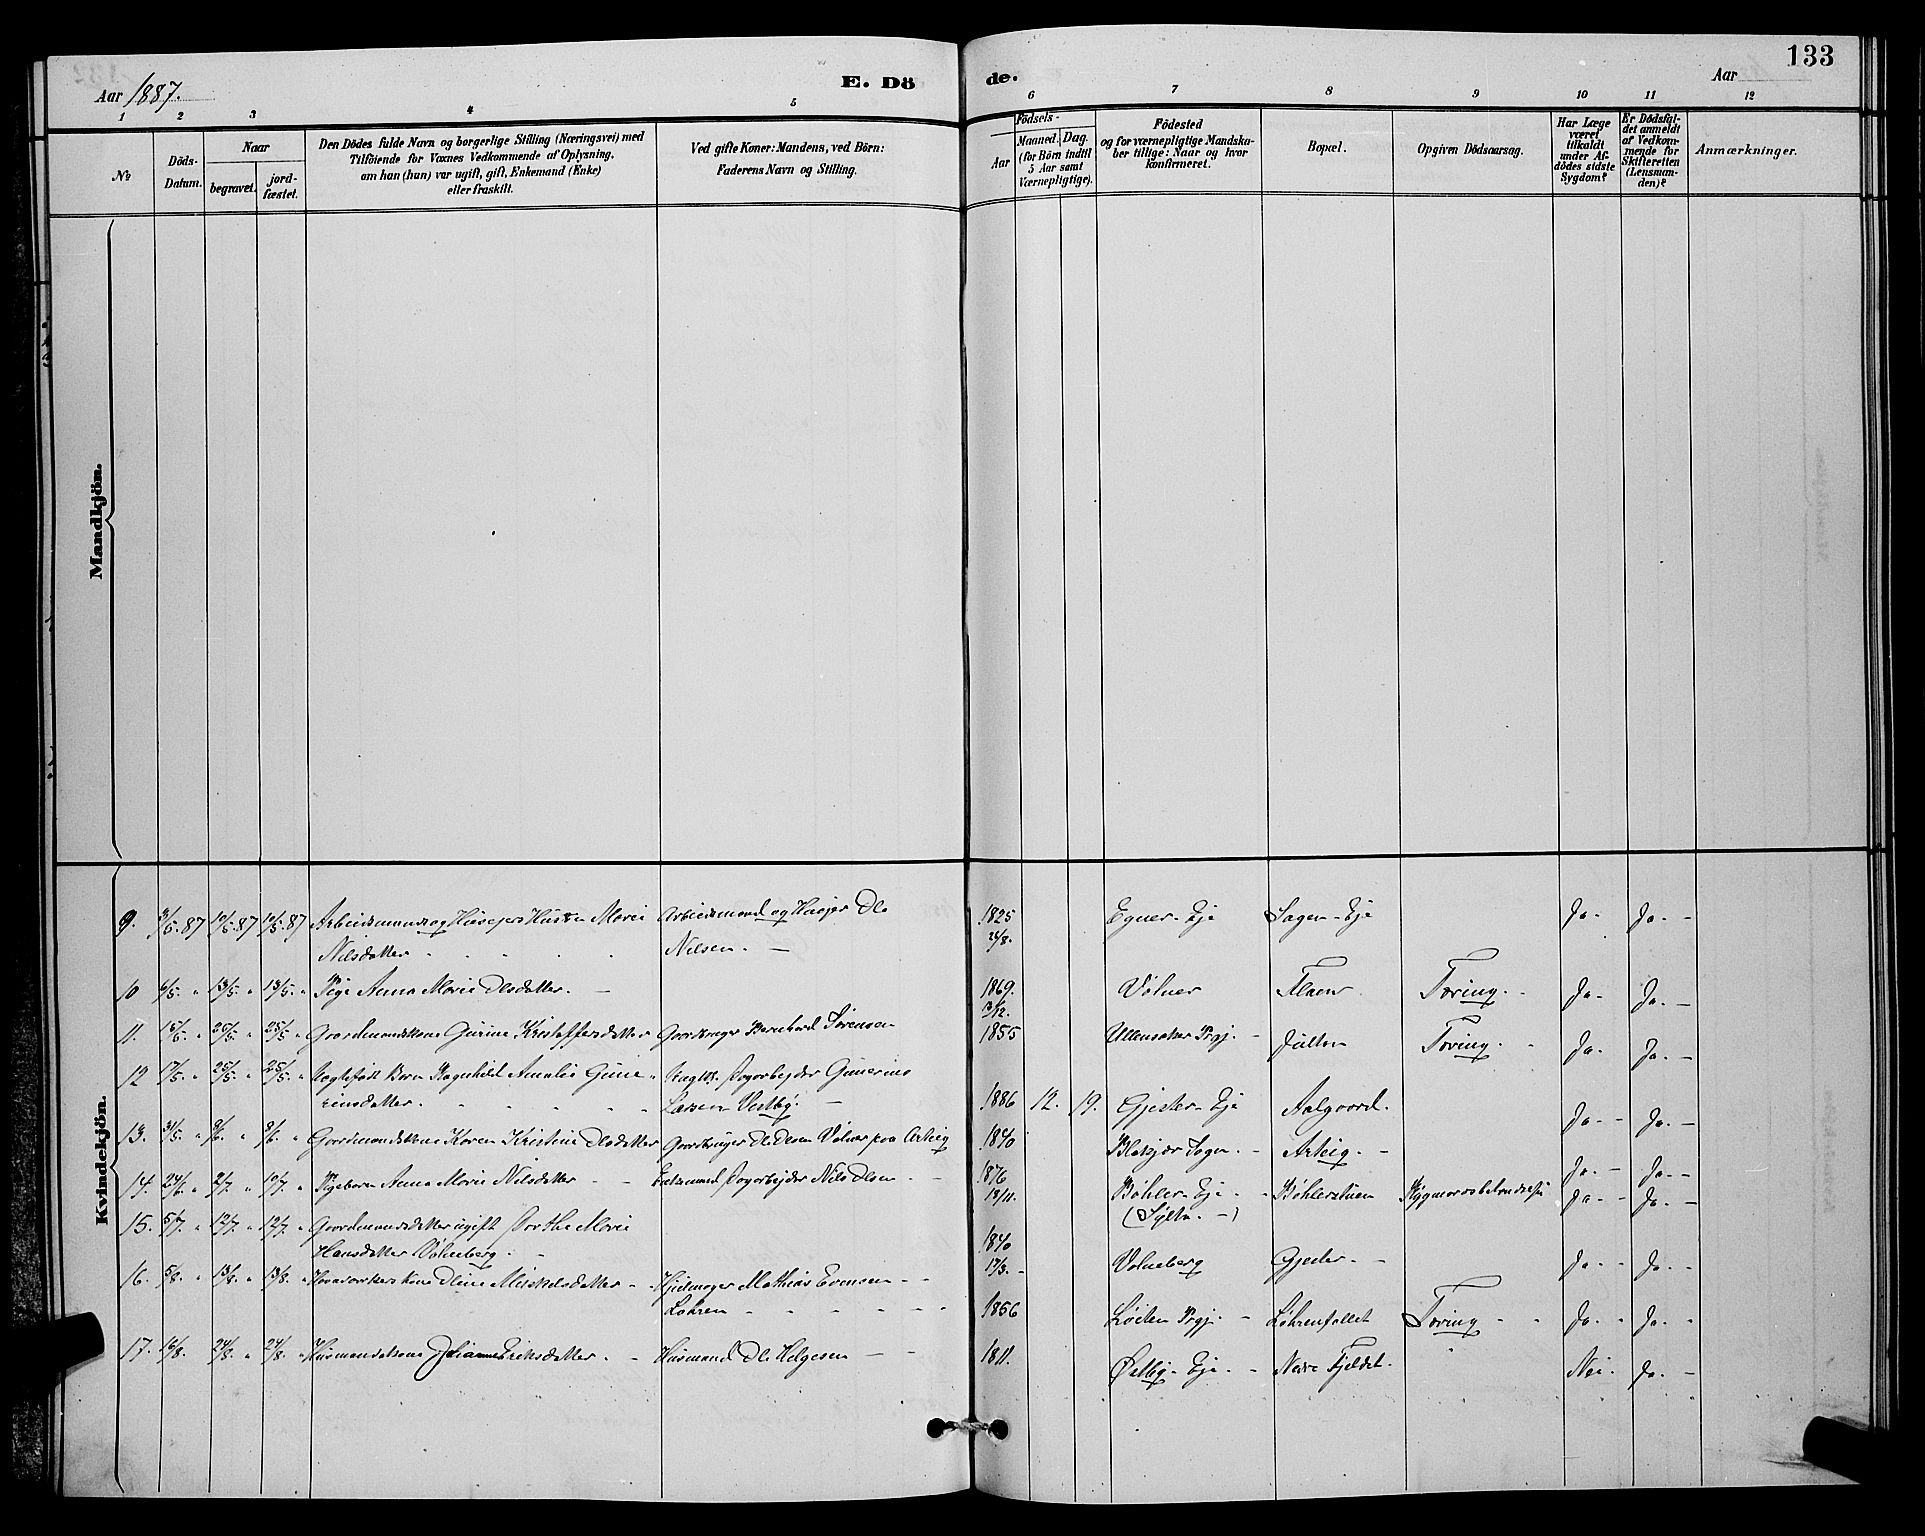 133
Aar 1887.
E. Dö
de.
Aar
1 2 3 4 5 6 7 8 9 10 11 12
№
Döds-
Datum.
Naar
begravet.
jord-
fæstet.
Den Dödes fulde Navn og borgerlige Stilling (Næringsvei) med
Tilföiende for Voxnes Vedkommende af Oplysning,
om han (hun) var ugift, gift, Enkemand (Enke)
eller fraskilt.
Ved gifte Koner: Mandens, ved Börn:
Faderens Navn og Stilling.
Födsels-
Aar
Maaned. Dag.
(for Börn indtil
5 Aar samt
Værnepligtige).
Födested
og for værnepligtige Mandska-
ber tillige: Naar og hvor
konfirmeret.
Bopæl.
Opgiven Dödsaarsag.
Har Læge
været
tilkaldt
under Af-
dödes sidste
Sygdom?
Er Dödsfal-
det anmeldt
af Vedkom-
mende for
Skifteretten
(Lensman-
den)?
Anmærkninger.
Mandkjön.
Kvindekjön.
9. 3/5.87 10/5.87 10/5.87 Arbeidsmand og Huusejers Hustru Marie Arbeidsmand og Huusejer Ole 1825 Egner-Eje Sagen-Eje Ja- Ja.-
Nilsdatter Nilsen.- 24/8.
10 6/5. " 13/5. " 13/5. " Pige Anna Marie Olsdatter.- 1869. Volner Flaen Tæring.- Ja- Ja.-
13/12.
11. 15/5 " 25/5 " 25/5 " Gaardmandskone Gurine Kristoffersdatter Gaardbruger Bernhard Sørensen 1855 Ullensaker Prgj.- Julton Tæring. Ja- Ja.-
12 17/5. " 25/5. " 25/5. " Ægtefødt Barn Ragnhild Amalie Gune- Dagarbejder Gunerius
riusdatter. Larsen Vestby.- 1886 12. 19. Gjester-Eje Aalgaard. Ja- Ja.-
13. 31/5. " 8/6. " 8/6. " Gaardmandskone Karen Kristine Olsdatter Gaardbruger Ole Olsen Volner paa Arteig 1840 Blakjer Sogn.- Arteig.- Ja.- Ja.-
14. 24/6. " 2/7. " 10/7. " Pigebarn Anna Marie Nilsdatter Dagarbejder Nils Olsen 1876 Bøhler-Eje.- Bøhlerstuen Ja- Ja.-
18/11.
15. 5/7. " 12/7. " 12/7. " Gaardmandsdatter ugift Dorthe Marie
Hansdatter Volneberg. 1840 Volneberg Gjester- Ja- Ja.-
17/3.-
16. 5/8. " 13/8. " 13/8. " Kone Oline Mikkelsdatter Mathias Evensen
Løhren 1856 Løiten Prgj.- Løhrenfallet Tæring Ja- Ja.
17. 16/8. " 24/8. " 24/8. " Husmandskone Johanne Eriksdatter.- Husmand Ole Helgesen 1811. Østby-Eje.- Nedre Fjeldet. Nei- Ja.-